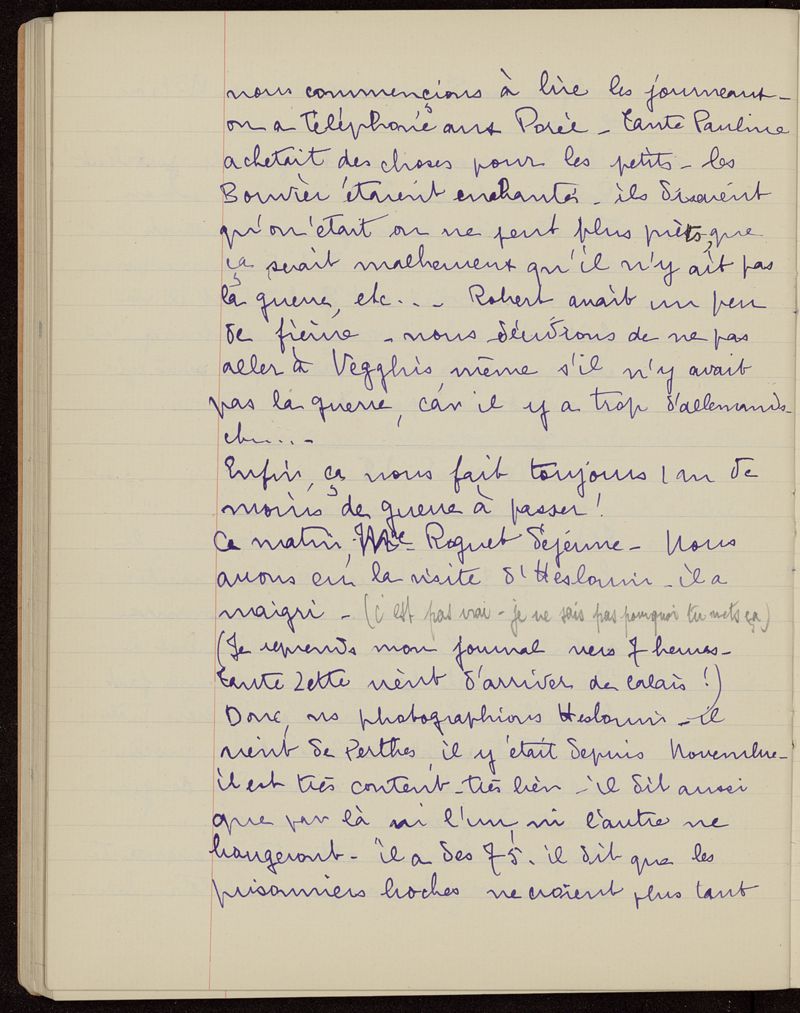 nous commencions à lire les journeaux -
on a téléphoné aux Porée - Tante Pauline
achetait des choses pour les petits - les
Bouvier étaient enchantés - ils disaient
qu'on était on ne peut plus prêts, que
ça serait malheureux qu'il n'y ait pas
la guerre, etc... - Robert avait un peu
de fièvre - nous décidions de ne pas
aller à Vegghis même s'il n'y avait
pas la guerre, car il y a trop d'allemands -
etc... -
Enfin, ça nous fait toujours 1 an de
moins de guerre à passer !
Ce matin, Mlle Roguet déjeune - Nous
avons eu la visite d'Heslouin - il a
maigri - (c'est pas vrai - je ne sais pas pourquoi tu mets ça)
(Je reprends mon journal vers 7 heures -
Tante Zette vient d'arriver de Calais !)
Donc, ns photographions Heslouin - il
vient de Perthes, il y était depuis Novembre -
il est très content - très bien - il dit aussi
que par là ni l'un, ni l'autre ne
bougeront - il a des 75. il dit que les
prisonniers boches ne croient plus tant